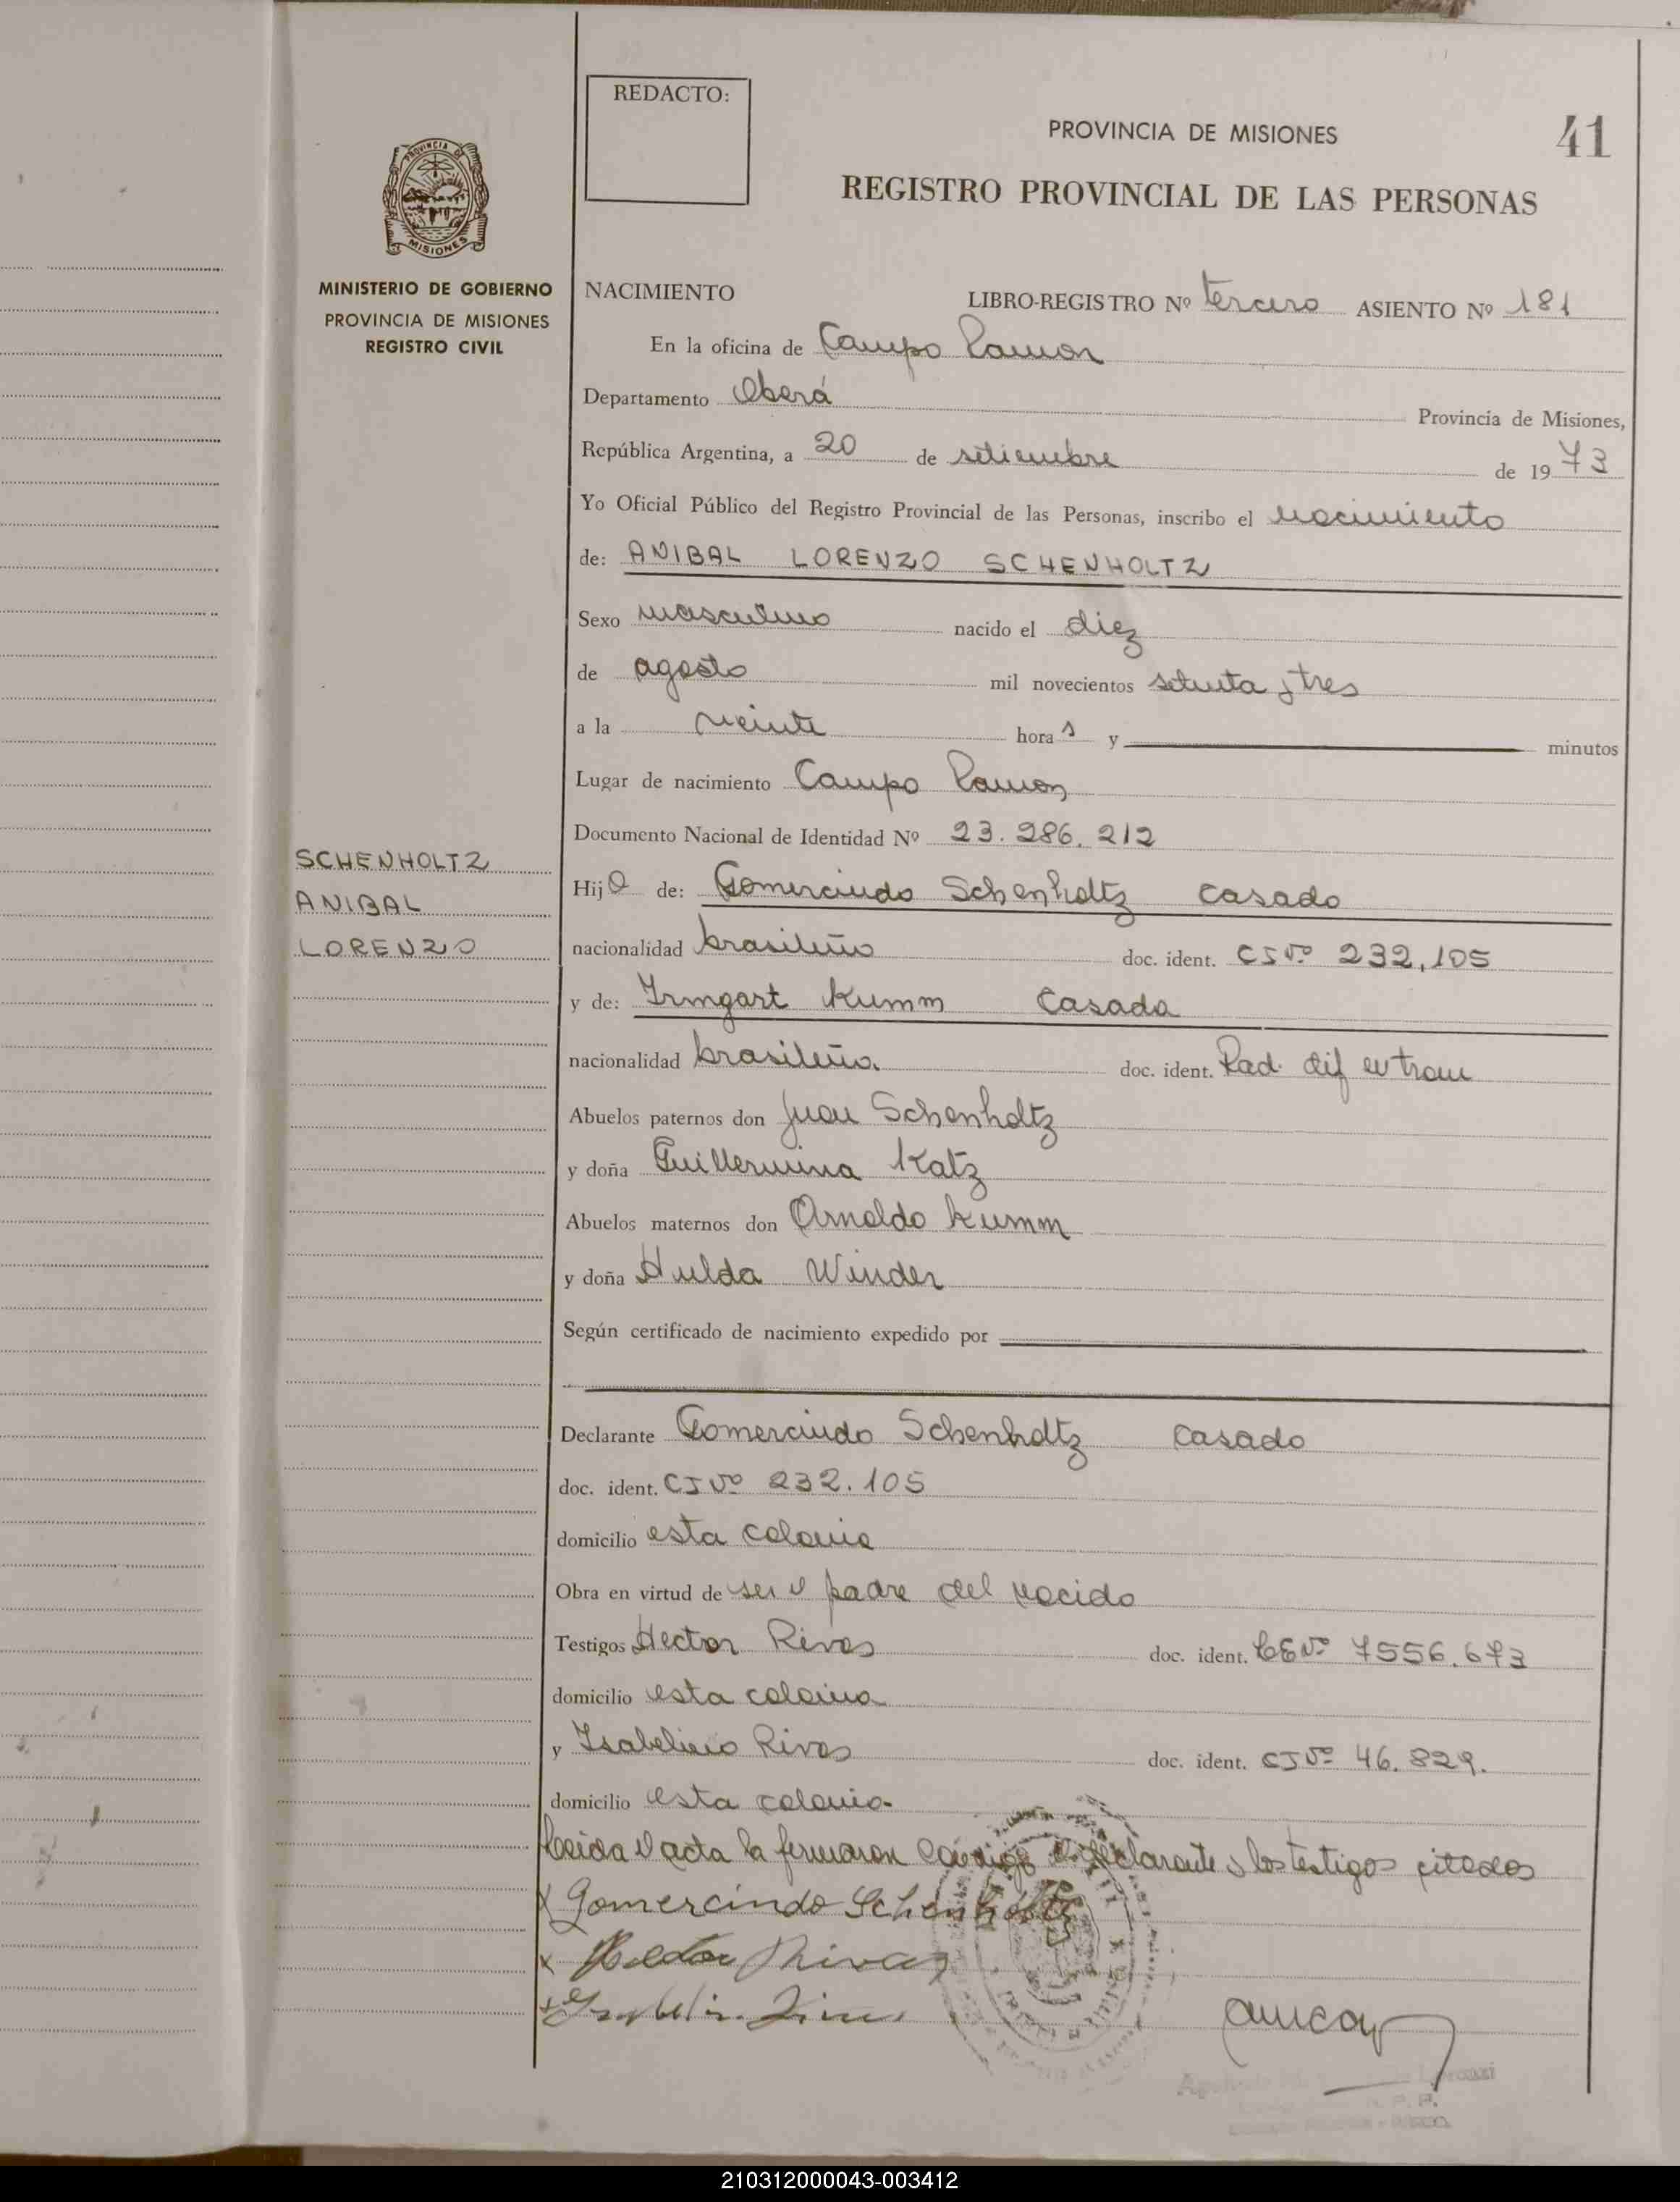 REDACTO:
PROVINCIA DE MISIONES
41
REGISTRO PROVINCIAL DE LAS PERSONAS
PROVINCIA DE
MISIONES
MINISTERIO DE GOBIERNO
PROVINCIA DE MISIONES
REGISTRO CIVIL
NACIMIENTO LIBRO-REGISTRO Nº tercero ASIENTO Nº 181
En la oficina de Campo Ramon
Departamento Oberá Provincia de Misiones,
República Argentina, a 20 de setiembre de 1973
Yo Oficial Público del Registro Provincial de las Personas, inscribo el nacimiento
de: ANIBAL LORENZO SCHENHOLTZ
Sexo masculino nacido el diez
de agosto mil novecientos setenta y tres
a la veinte horas y minutos
Lugar de nacimiento Campo Ramon
Documento Nacional de Identidad Nº 23.286.212
SCHENHOLTZ
ANIBAL
LORENZO
Hijo de: Gomercindo Schenholtz casado
nacionalidad brasileño doc. ident. CI Nº 232.105
y de: Irmgart Kumm casada
nacionalidad brasileña. doc. ident. Rad. dif en tram
Abuelos paternos don Juan Schenholtz
y doña Guillermina Katz
Abuelos maternos don Arnoldo Kumm
y doña Hulda Winder
Según certificado de nacimiento expedido por
Declarante Gomercindo Schenholtz casado
doc. ident. CI Nº 232.105
domicilio esta colonia
Obra en virtud de ser el padre del nacido
Testigos Hector Rivas doc. ident. LE Nº 7556.673
domicilio esta colonia
y Isabelino Rivas doc. ident. CI Nº 46.829.
domicilio esta colonia.
Leida el acta la firmaron conmigo el declarante y los testigos citados
x Gomercindo Schenholtz
x Hector Rivas
x
210312000043-003412